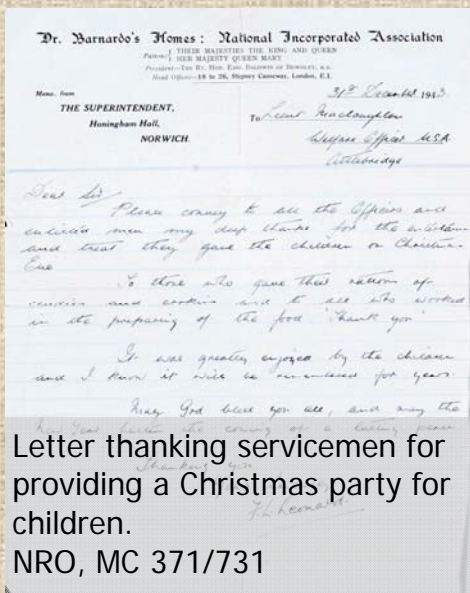 Dr. Barnardo's Homes: National Incorporated Association
Patrons: { THEIR MAJESTIES THE KING AND QUEEN
HER MAJESTY QUEEN MARY
President—THE RT. HON. EARL BALDWIN OF BEWDLEY, K.G.
Head Offices—18 to 26, Stepney Causeway, London, E.1.
Memo. from
THE SUPERINTENDENT,
Honingham Hall,
NORWICH.
31st December 1943
To Lieut Macloughlin
Welfare Officer USA
Attlebridge
Dear Sir
Please convey to all the Officers and
enlisted men my deep thanks for the
and treat they gave the children on Christmas
Eve
To those who gave their rations of
candies and cookies and to all who worked
in the preparing of the food 'Thank you'
It was greatly enjoyed by the children
and I know it will be remembered for years.
May God bless you all, and may the
New Year the coming of a lasting peace
Thanking you
F. L. Leonard.
Letter thanking servicemen for
providing a Christmas party for
children.
NRO, MC 371/731